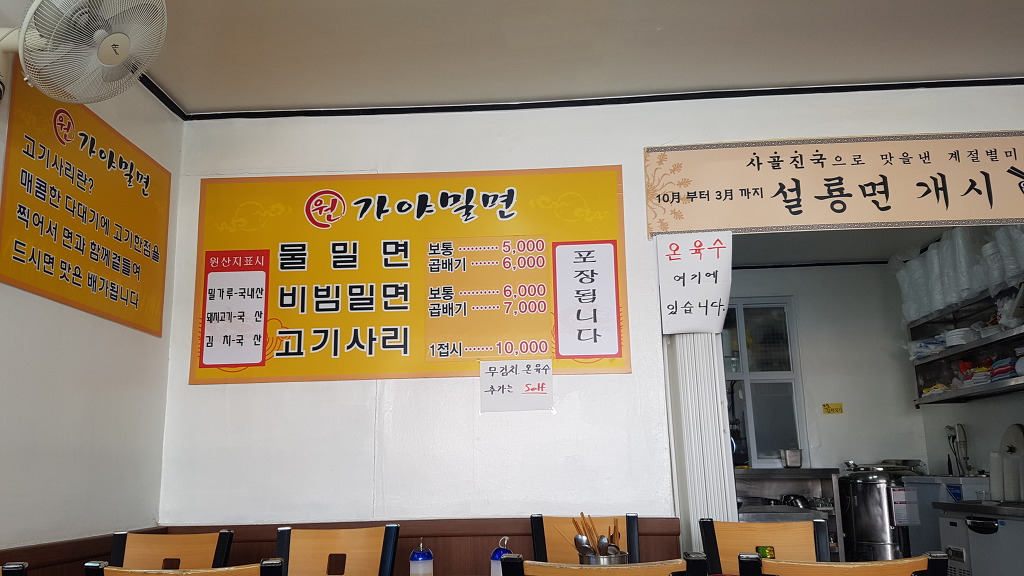 원 가야밀면
고기사리란?
매콤한 다대기에 고기한점을
찍어서 면과 함께곁들어
드시면 맛은 배가됩니다
원 가야밀면
원산지표시
밀가루-국내산
돼지고기-국 산
김 치-국 산
물 밀 면 보통 ·········· 5,000
곱배기 ······· 6,000
비빔밀면 보통 ·········· 6,000
곱배기 ······· 7,000
고기사리 1접시 ······· 10,000
포장됩니다
무김치 온육수
추가는 Self
사골진국으로 맛을낸 계절별미
10月 부터 3月 까지 설룡면 개시
온육수
여기에
있습니다.